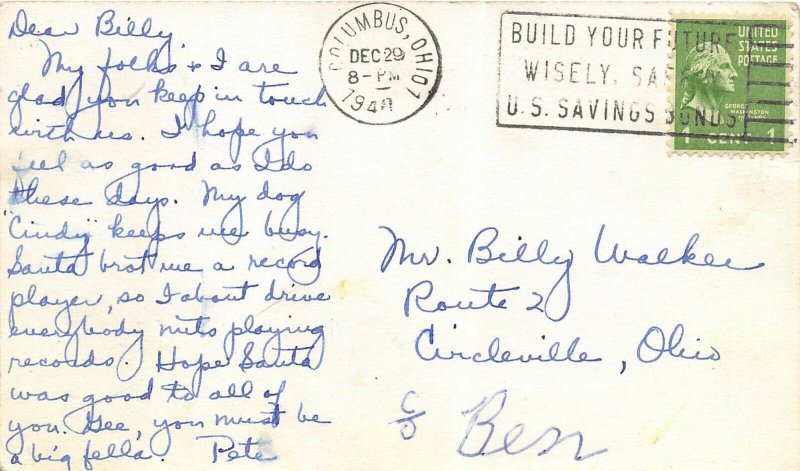 Dear Billy
My folks & I are
glad you keep in touch
with us. I hope you
feel as good as I do
these days. My dog
"Cindy" keeps me busy.
Santa brot me a record
player, so I about drive
everybody nuts playing
records. Hope Santa
was good to all of
you. Gee, you must be
a big fella. Pete
COLUMBUS, OHIO
DEC 29
8-PM
BUILD YOUR FUTURE
WISELY, SAFELY
U.S. SAVINGS BONDS
UNITED
STATES
POSTAGE
GEORGE
WASHINGTON
1 CENT 1
Mr. Billy Walker
Route 2
Circleville, Ohio
c/o Ben